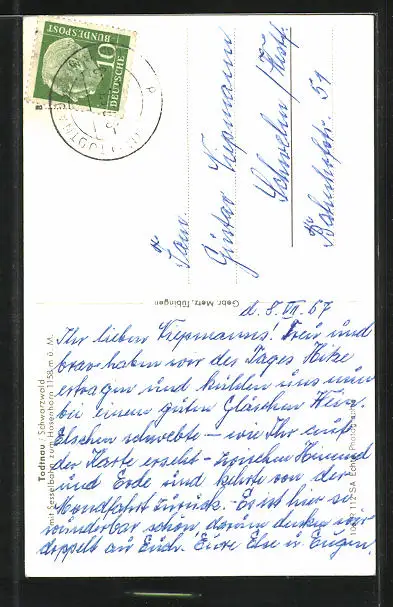 10
DEUTSCHE
BUNDESPOST
Fam.
Günter Siepmann
Schwelm / Westf.
Bahnhofstr. 51
Gebr. Metz, Tübingen
Todtnau / Schwarzwald
mit Sesselbahn zum Hasenhorn 1158 m ü. M.
d. 8. VII. 57
Ihr lieben Siepmanns! Treu und
brav haben wir des Tages Hitze
ertragen und kühlen uns nun
bei einem guten Gläschen Wein.
Elschen schwebte – wie Ihr auf
der Karte erseht – zwischen Himmel
und Erde und kehrte von der
Mondfahrt zurück. Es ist hier so
wunderbar schön, darum denken wir
doppelt an Euch. Eure Else u. Eugen.